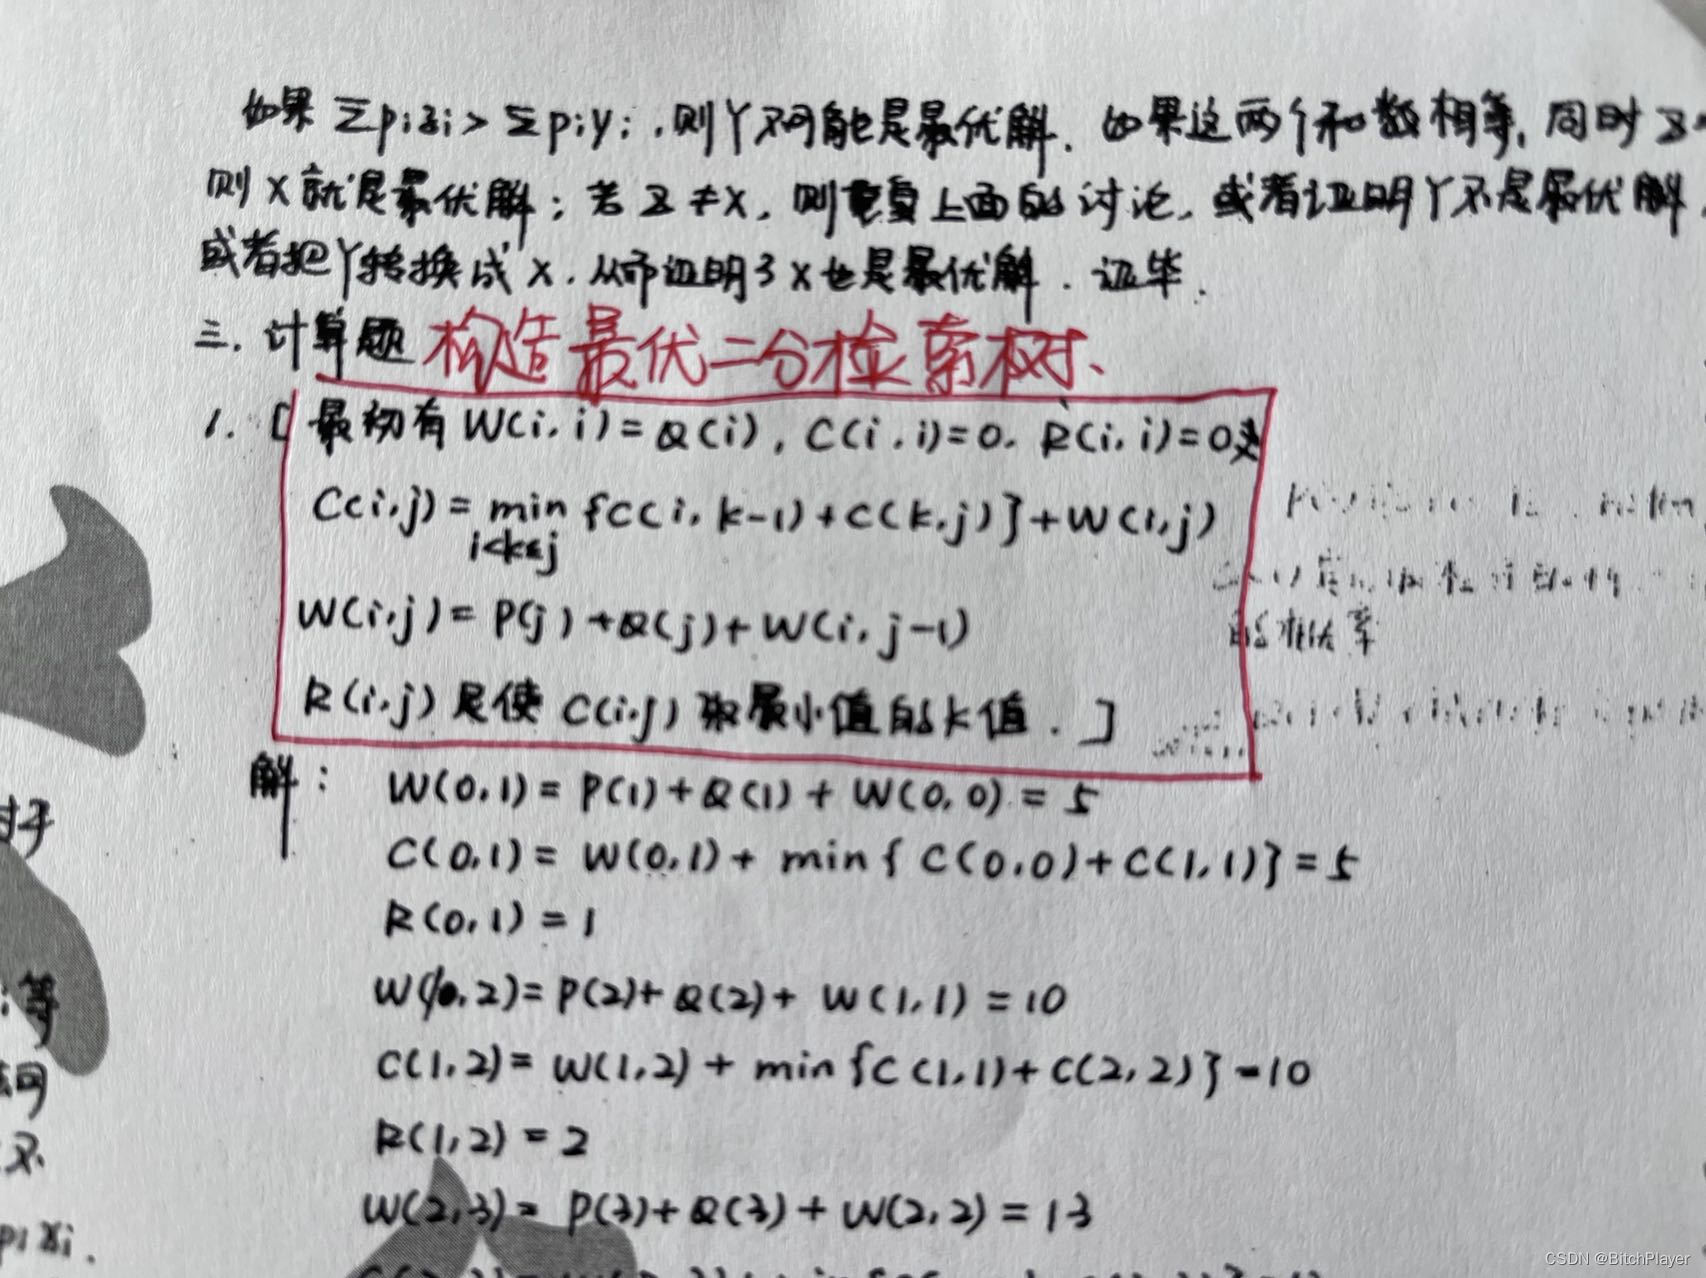 如果 Σpizi > Σpiyi,则Y不可能是最优解. 如果这两个和数相等, 同时 Z
则 X 就是最优解; 若 Z ≠ X, 则重复上面的讨论, 或者证明Y不是最优解,
或者把Y转换成 X, 从而证明了X也是最优解. 证毕.
三. 计算题 构造最优二分检索树、
1. [ 最初有 W(i,i) = Q(i), C(i,i)=0. R(i,i)=0
C(i,j) = min {C(i,k-1)+C(k,j)}+W(1,j)
i<k≤j
W(i,j) = P(j)+Q(j)+W(i,j-1)
R(i,j) 是使 C(i,j) 取最小值的k值. ]
的概率
解: W(0,1) = P(1)+Q(1)+W(0,0) = 5
对于
C(0,1) = W(0,1)+ min{ C(0,0)+C(1,1)} = 5
R(0,1) = 1
等
W(0,2) = P(2)+Q(2)+ W(1,1) = 10
C(1,2) = W(1,2) + min{C(1,1)+C(2,2)} = 10
R(1,2) = 2
不
W(2,3) = P(3)+Q(3)+W(2,2) = 13
pixi.
CSDN @BitchPlayer